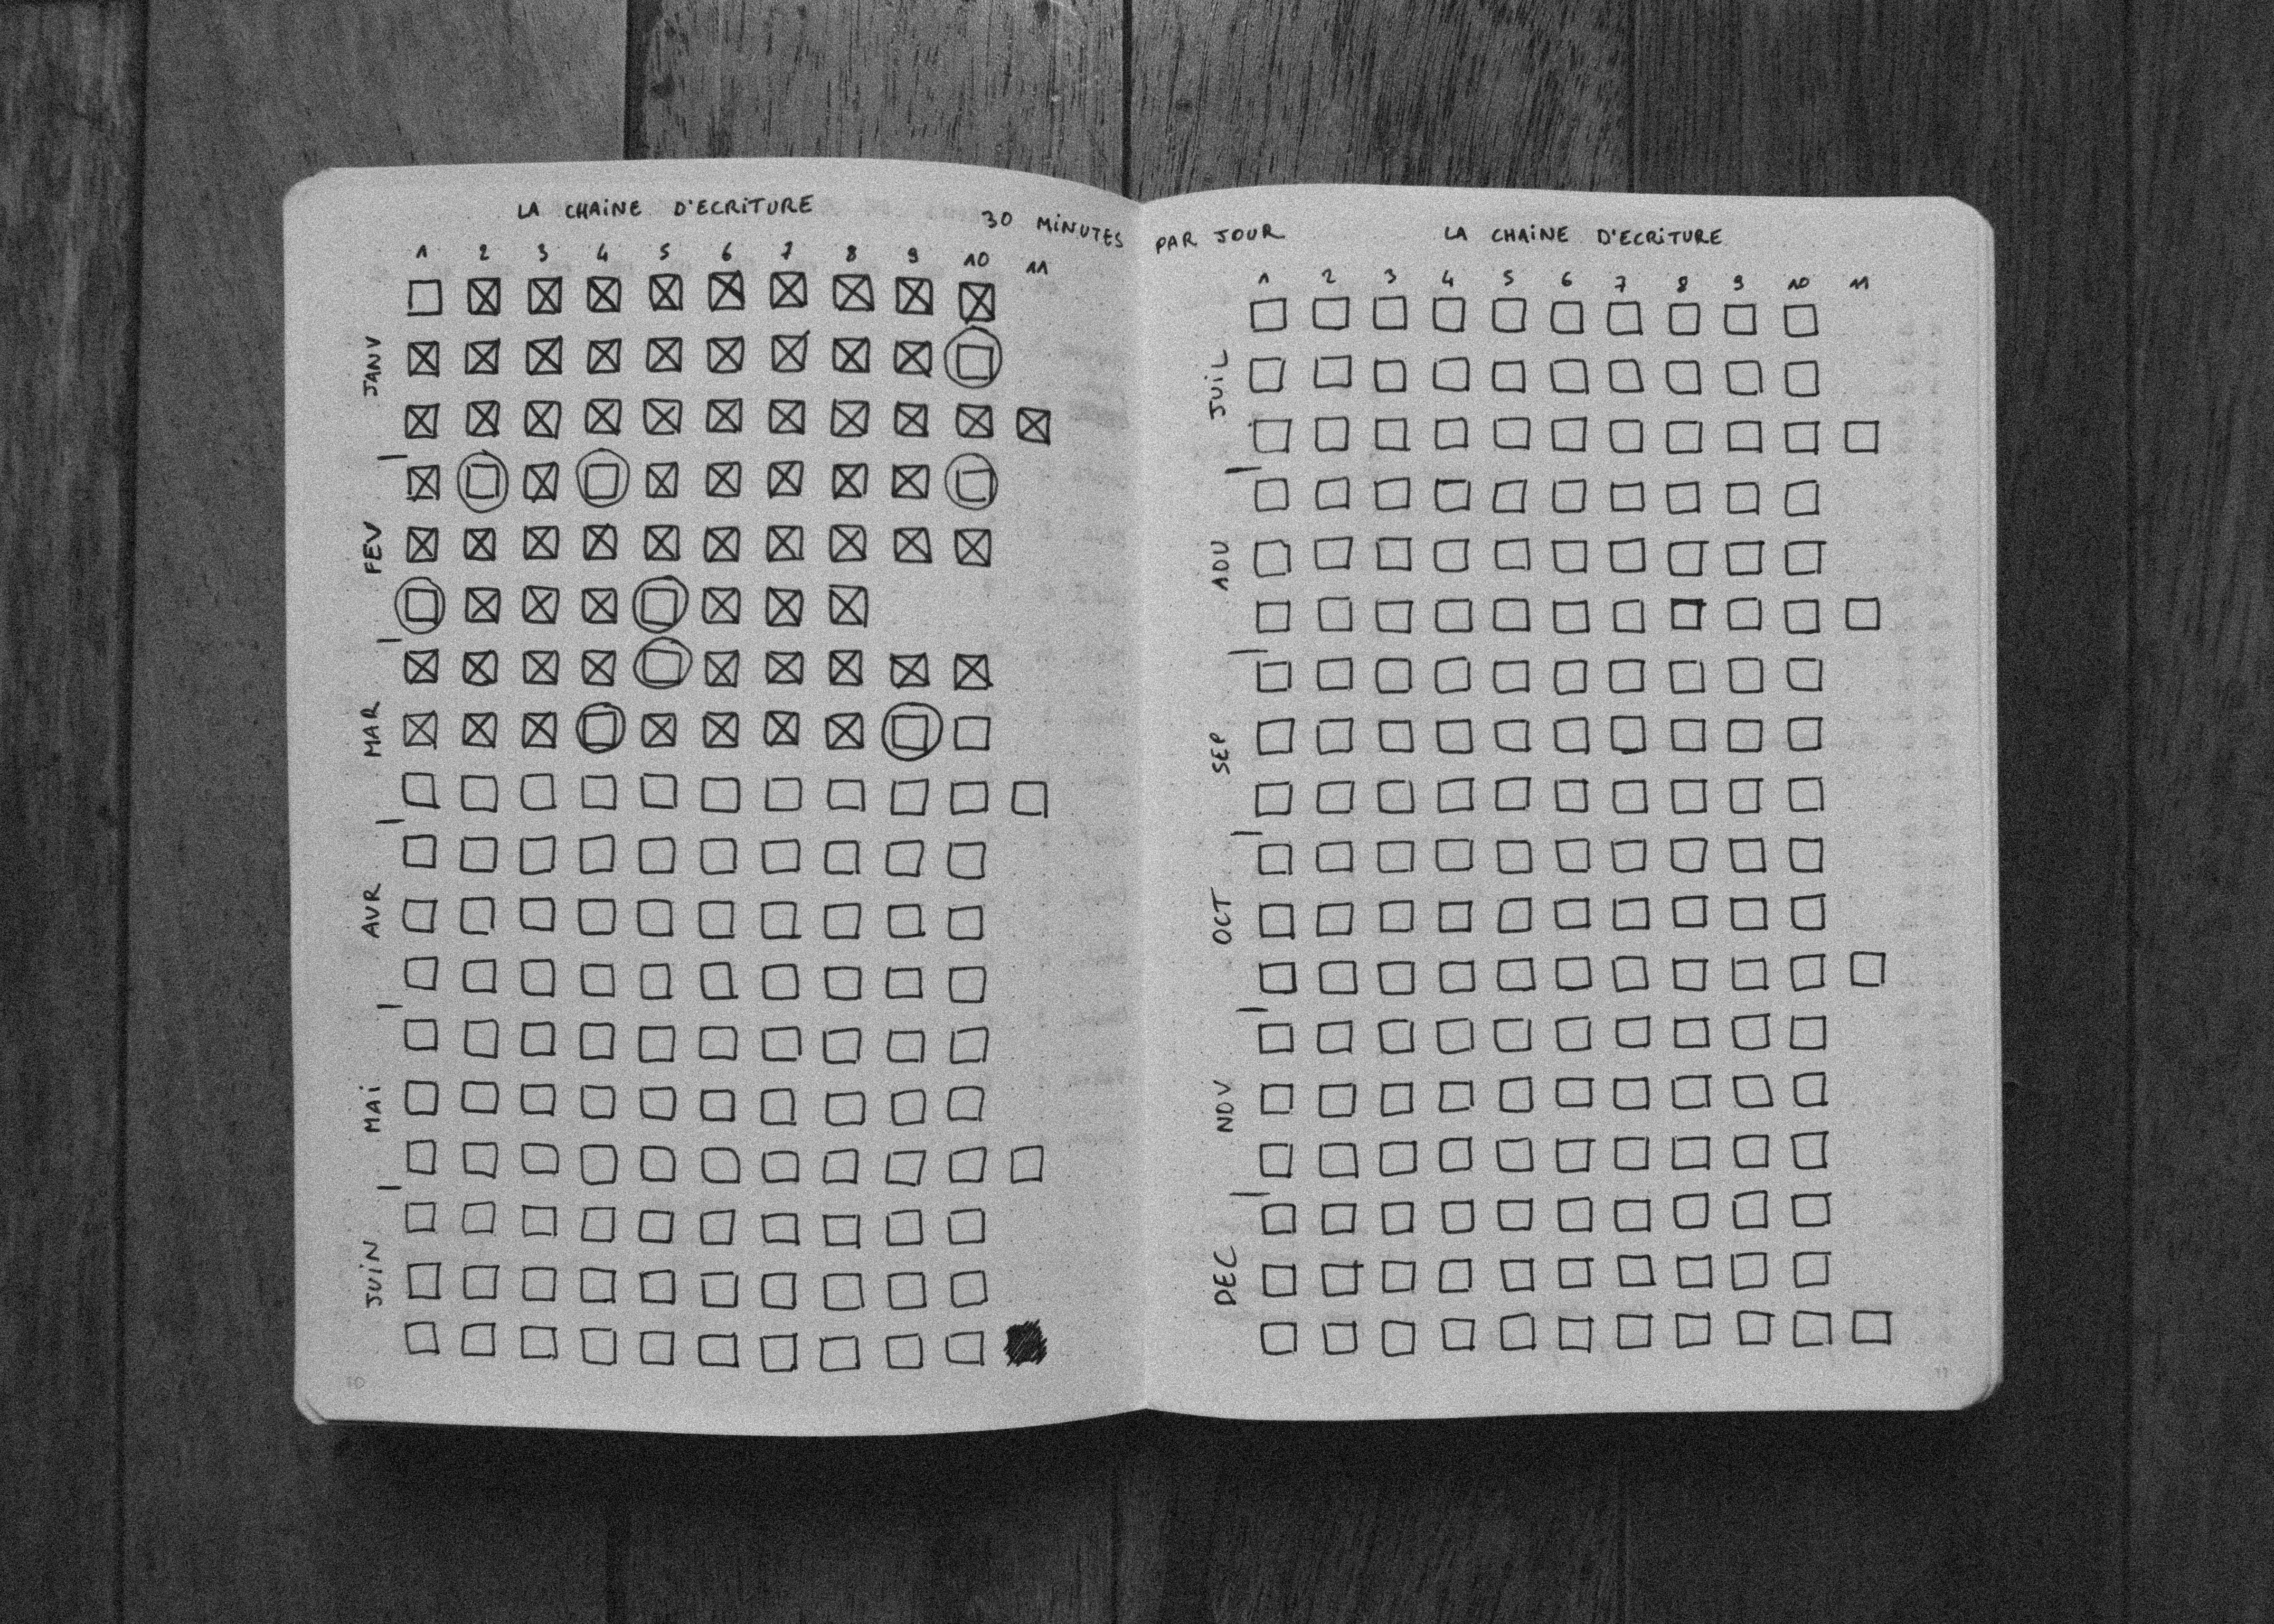 LA CHAiNE D'ECRiTURE
30 MiNUTES PAR JOUR
1 2 3 4 5 6 7 8 9 10 11
JANV
FEV
MAR
AVR
MAi
JUiN
10
LA CHAiNE D'ECRiTURE
1 2 3 4 5 6 7 8 9 10 11
JUiL
AOU
SEP
OCT
NOV
DEC
11